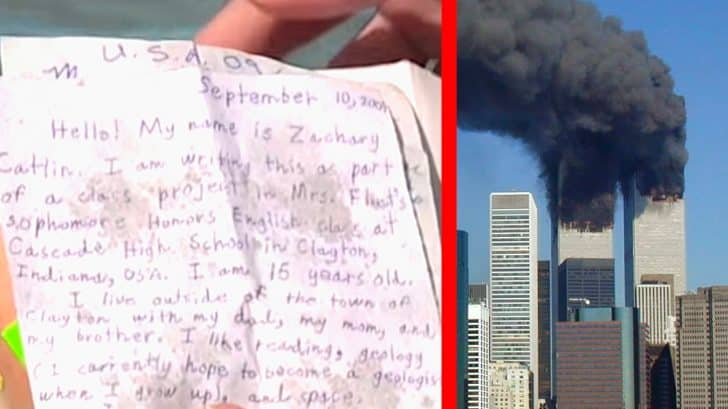 U.S.A. 09
September 10,
Hello! My name is Zachary
Catlin. I am writing this as part
of a class project in Mrs.
Sophomore Honors English class at
Cascade High School in Clayton,
Indiana, USA. I am 16 years old.
I live outside of the town of
Clayton with my dad, my mom, and
my brother. I like reading, geology
(I currently hope to become a geologis
when I grow up), and space.